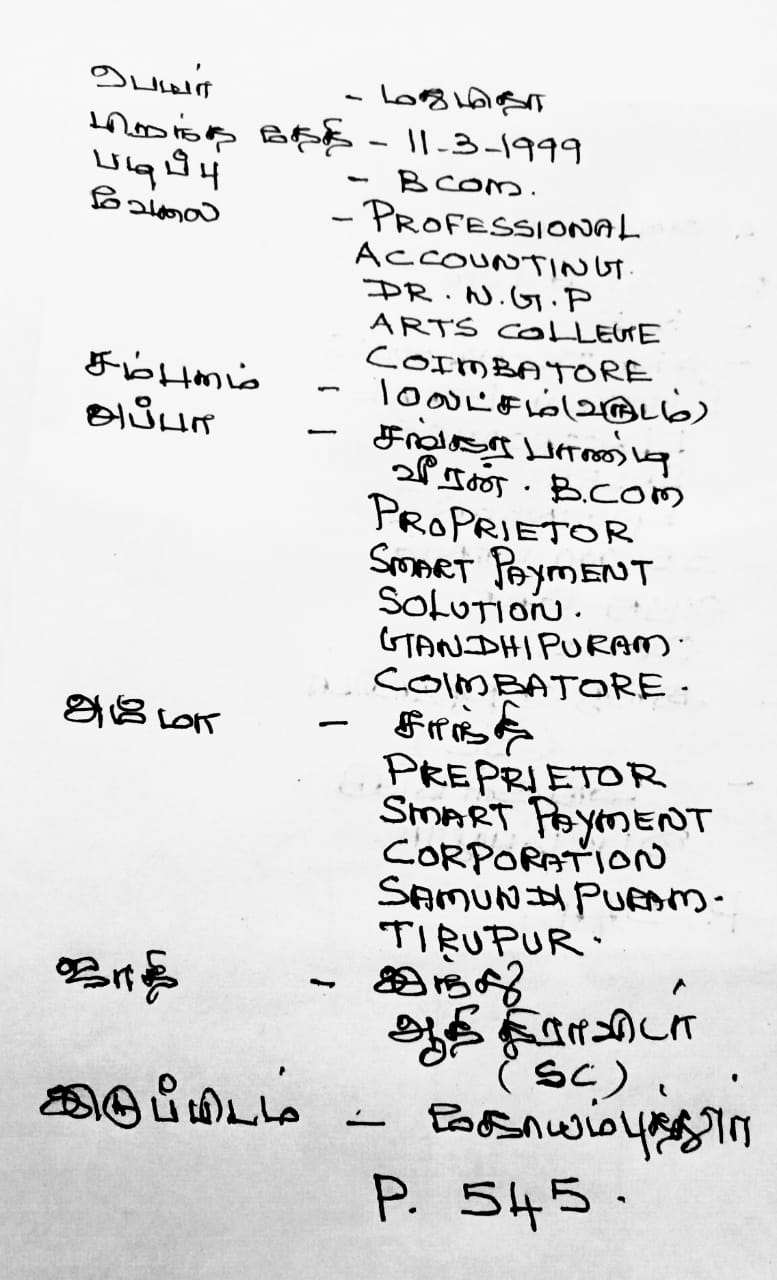 பெயர் - மதுமிதா
பிறந்த தேதி - 11-3-1999
படிப்பு - B COM.
வேலை - PROFESSIONAL
ACCOUNTING.
DR. N.G.P
ARTS COLLEGE
COIMBATORE
சம்பளம் - 10 லட்சம் (வருடம்)
அப்பா - சங்கர பாண்டி
வீரன். B.COM
PROPRIETOR
SMART PAYMENT
SOLUTION.
GANDHIPURAM.
COIMBATORE.
அம்மா - சாந்தி
PREPRIETOR
SMART PAYMENT
CORPORATION
SAMUNDIPURAM.
TIRUPUR.
ஜாதி - இந்து
ஆதி திராவிடர்
(SC).
இருப்பிடம் - கோயம்புத்தூர்
P. 545.